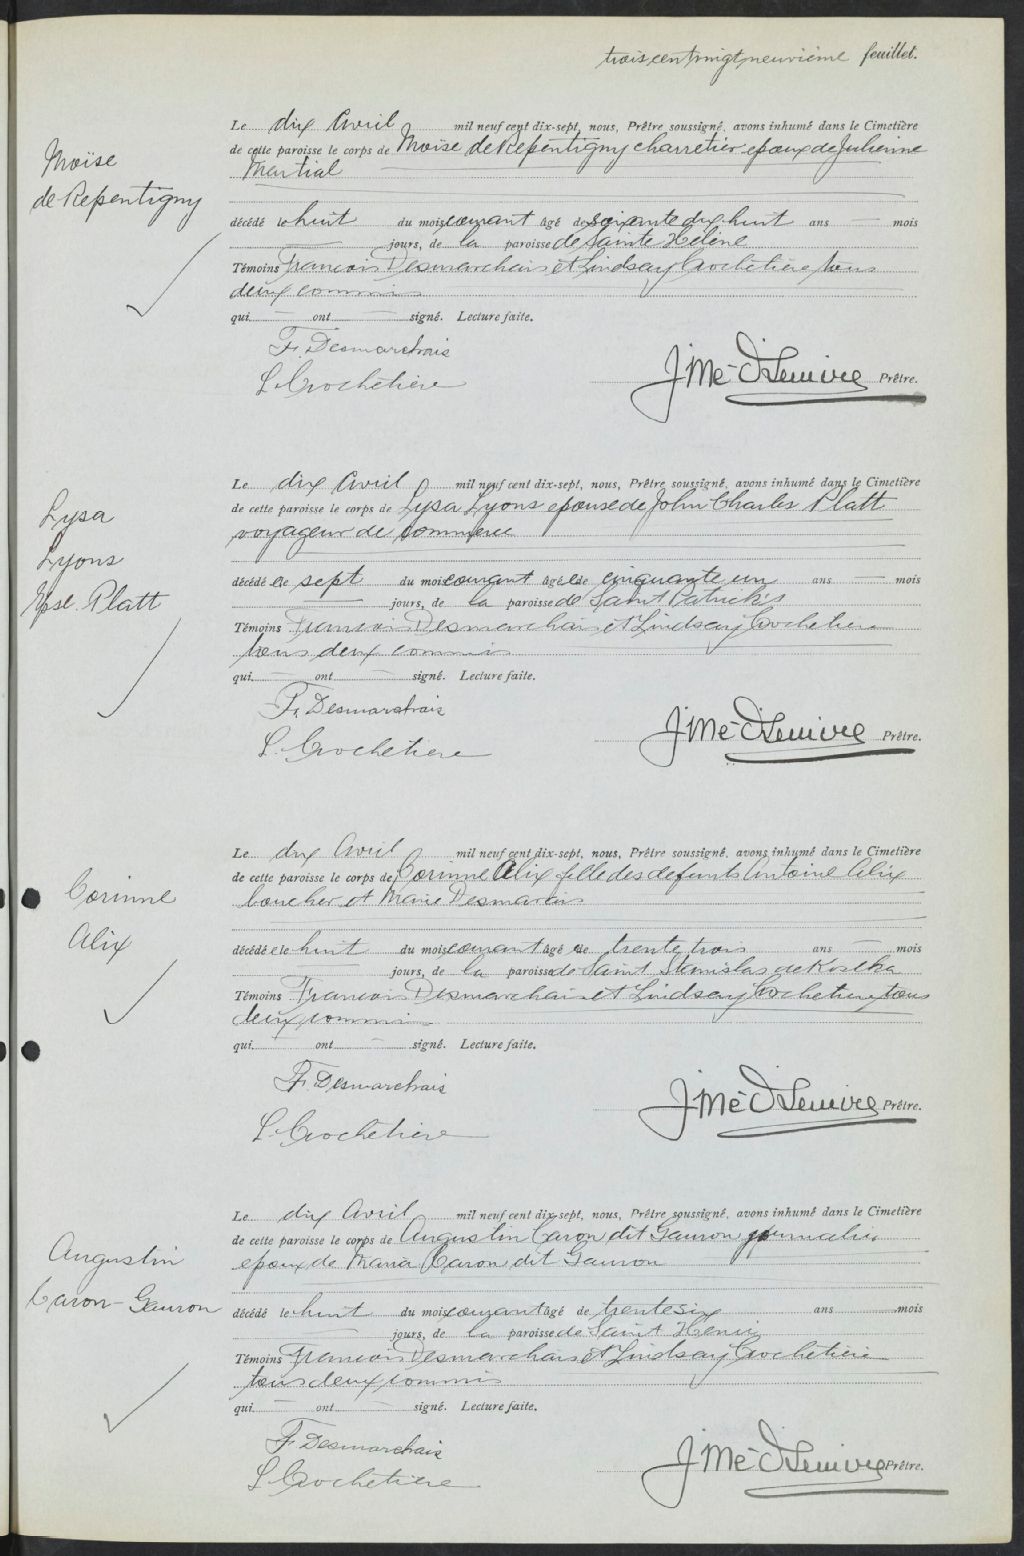 trois cent vingt neuvième feuillet.
Moïse
de Repentigny
Le dix Avril mil neuf cent dix-sept, nous, Prêtre soussigné, avons inhumé dans le Cimetière
de cette paroisse le corps de Moïse de Repentigny charretier epoux de Julienne
Martial
décédé le huit du mois courant âgé de soixante dix huit ans — mois
— jours, de la paroisse de Sainte Hélène
Témoins Francois Desmarchais et Lindsay Crochetière tous
deux commis
qui — ont — signé. Lecture faite.
F. Desmarchais
L. Crochetière
Prêtre.
Lysa
Lyons
Epse Platt
Le dix Avril mil neuf cent dix-sept, nous, Prêtre soussigné, avons inhumé dans le Cimetière
de cette paroisse le corps de Lysa Lyons epouse de John Charles Platt
voyageur de commerce
décédée le sept du mois courant âgée de cinquante un ans — mois
— jours, de la paroisse de Saint Patrick's
Témoins Francois Desmarchais et Lindsay Crochetiere
tous deux commis
qui — ont — signé. Lecture faite.
F. Desmarchais
L. Crochetiere
Prêtre.
Corinne
Alix
Le dix Avril mil neuf cent dix-sept, nous, Prêtre soussigné, avons inhumé dans le Cimetière
de cette paroisse le corps de Corinne Alix fille des defunts Antoine Alix
boucher et Marie Desmarais
décédée le huit du mois courant âgée de trente trois ans — mois
— jours, de la paroisse de Saint Stanislas de Kostka
Témoins Francois Desmarchais et Lindsay Crochetiere tous
deux commis
qui — ont — signé. Lecture faite.
F. Desmarchais
L. Crochetière
Prêtre.
Augustin
Caron-Gauron
Le dix Avril mil neuf cent dix-sept, nous, Prêtre soussigné, avons inhumé dans le Cimetière
de cette paroisse le corps de Augustin Caron dit Gauron journalier
epoux de Maria Caron dit Gauron
décédé le huit du mois courant âgé de trente six ans mois
— jours, de la paroisse de Saint Henri
Témoins Francois Desmarchais et Lindsay Crochetière
tous deux commis
qui — ont — signé. Lecture faite.
F. Desmarchais
L. Crochetière
Prêtre.